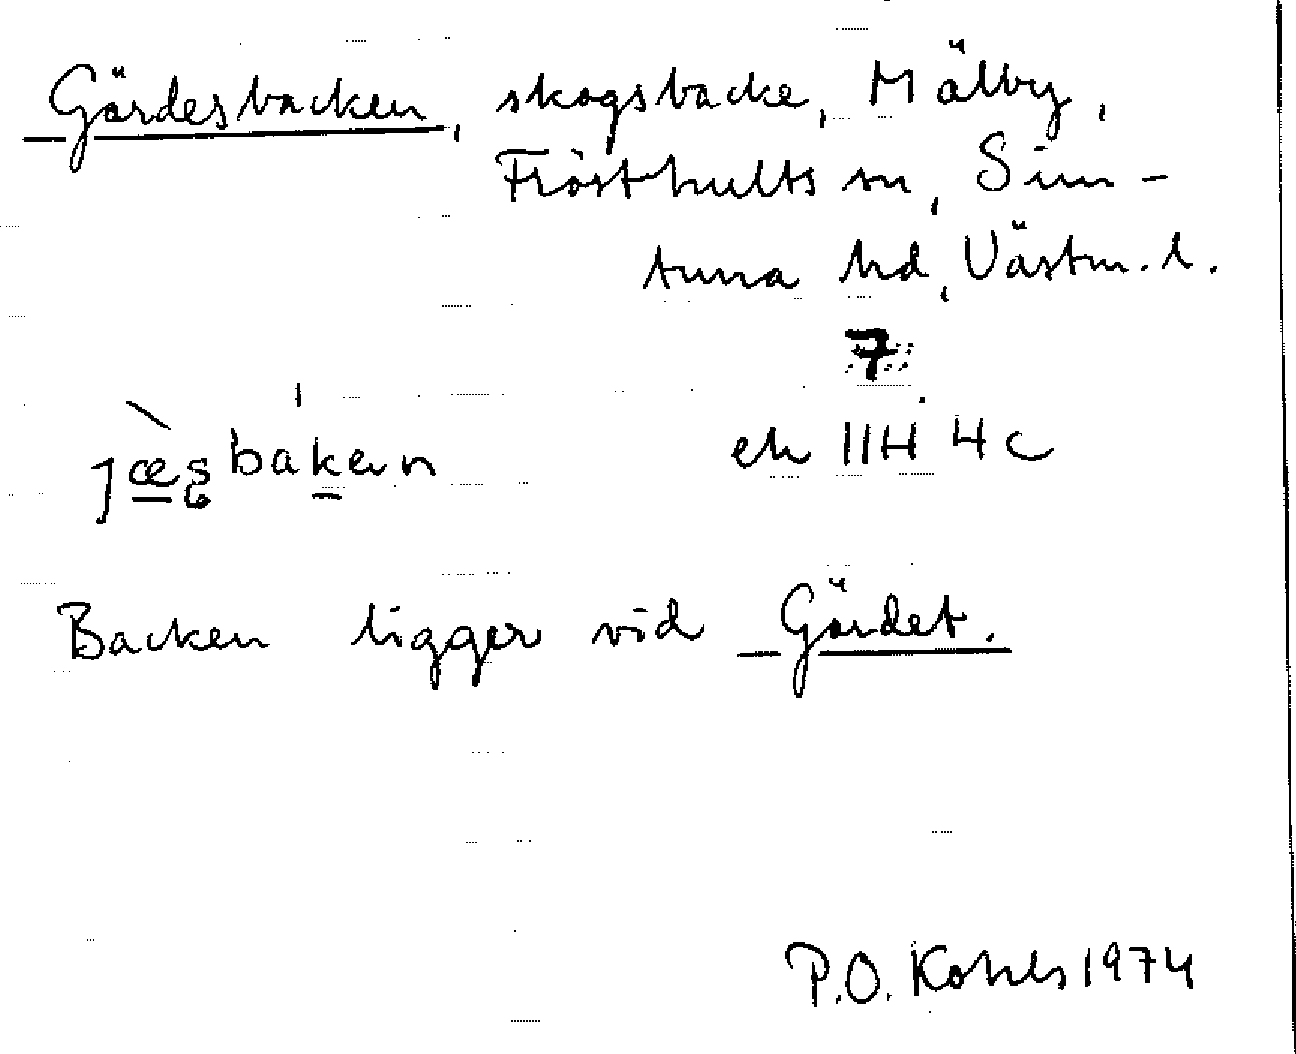 Gärdesbacken, skogsbacke, Mälby,
Frösthults sn, Sim-
tuna hd, Västm. l.
7
ek 11H 4c
Backen ligger vid Gärdet.
P.O. Kohls 1974